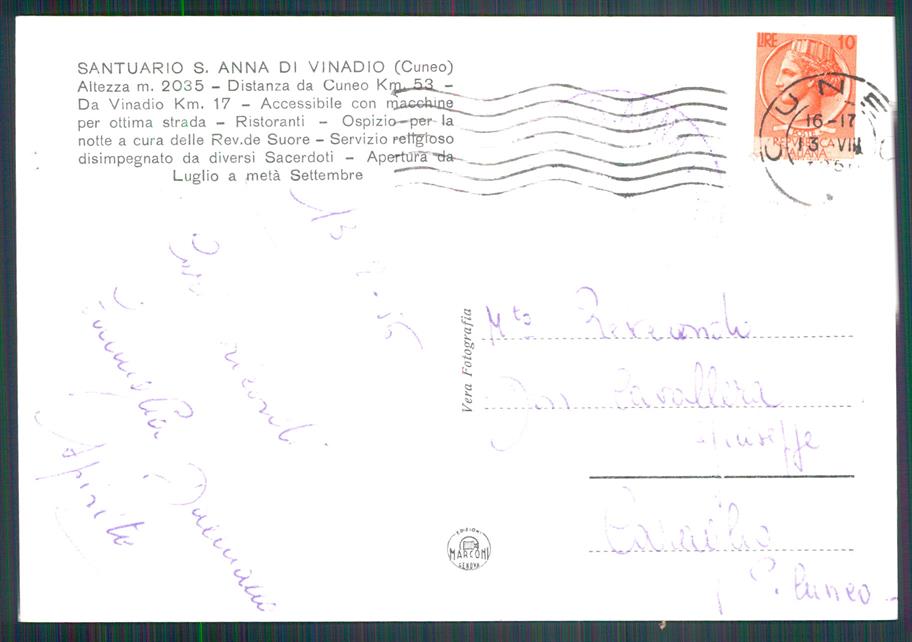 SANTUARIO S. ANNA DI VINADIO (Cuneo)
Altezza m. 2035 – Distanza da Cuneo Km. 53 –
Da Vinadio Km. 17 – Accessibile con macchine
per ottima strada – Ristoranti – Ospizio per la
notte a cura delle Rev.de Suore – Servizio religioso
disimpegnato da diversi Sacerdoti – Apertura da
Luglio a metà Settembre
LIRE 10
REPUBBLICA
ITALIANA
16-17
13 VIII
13
ricordi
Famiglia
Spirito
Vera Fotografia
Mto Reverendo
Don Cavallera
Giuseppe
Caraglio
P. Cuneo
EDIZIONI
MARCONI
GENOVA